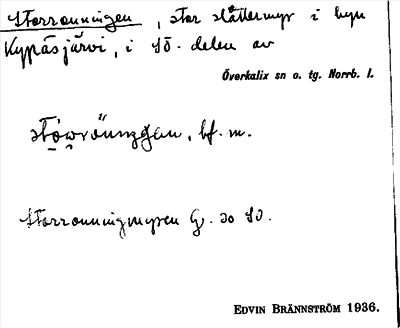 Storronningen, stor slåttermyr i byn
Kypäsjärvi, i SÖ-delen av
Överkalix sn o. tg. Norrb. l.
bf. m.
Storronningmyren G. 20 SO.
EDVIN BRÄNNSTRÖM 1936.